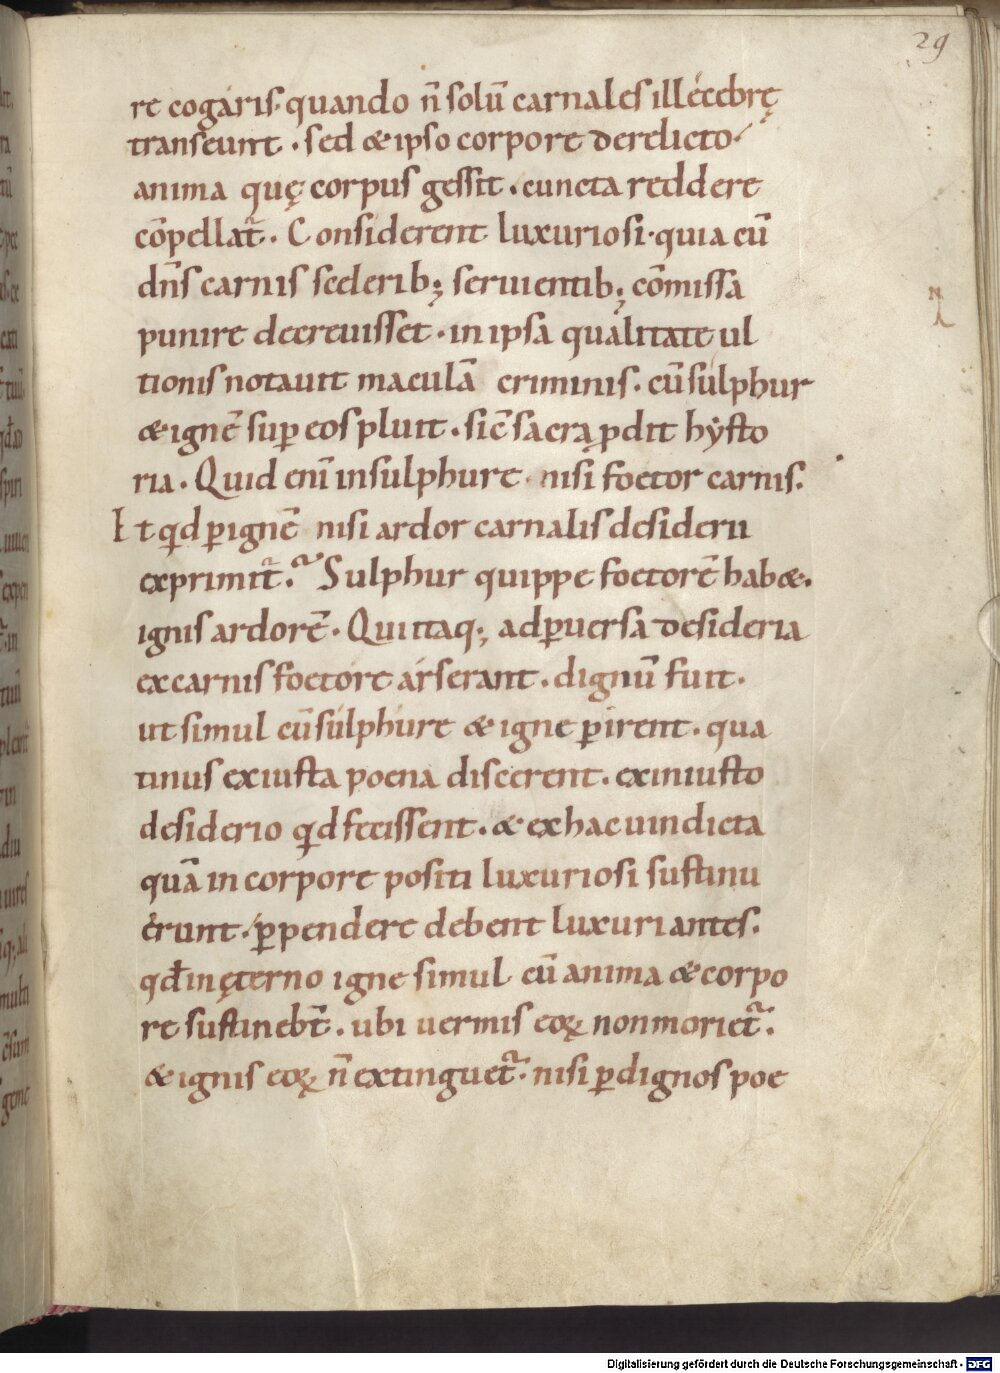 29
re cogaris· quando n̄ solū carnales illecebrę
transeunt · sed & ipso corpore derelicto·
anima quę corpus gessit · cuncta reddere
cōpellat᷑· Considerent luxuriosi· quia cū
dn̄s carnis sceleribꝫ seruientibꝫ cōmissa
punire decreuisset · in ipsa qualitate ul
tionis notauit maculā criminis · cū sulphur
& ignē suꝑ eos pluit · sic̄ sacra ꝓdit hẏsto
ria · Quid enī in sulphure · nisi foetor carnis·
Et qͥd ꝑ ignē nisi ardor carnalis desiderii
exprimit᷑· Sulphur quippe foetorē hab&·
ignis ardorē · Qui itaqꝫ ad ꝑuersa desideria
ex carnis foetore arserant · dignū fuit·
ut simul cū sulphure & igne ꝑirent · qua
tinus ex iusta poena discerent · ex iniusto
desiderio qͥd fecissent · & ex hac uindicta
quā in corpore positi luxuriosi sustinu
erunt · ꝑpendere debent luxuriantes·
qđ in ęterno igne simul cū anima & corpo
re sustinebt̄ · ubi uermis eoꝝ non moriet᷑·
& ignis eoꝝ n̄ extinguet᷑· nisi ꝑ dignos poe
Digitalisierung gefördert durch die Deutsche Forschungsgemeinschaft - DFG